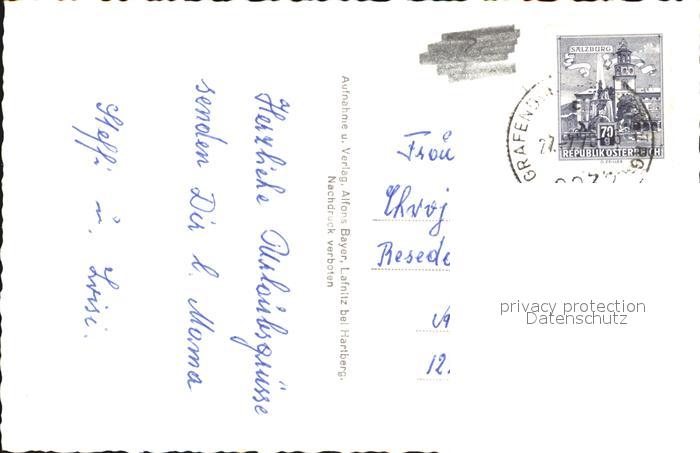 Herzliche Urlaubsgrüsse
senden Dir l. Mama
Steffi u. Luisi.
Aufnahme u. Verlag, Alfons Bayer, Lafnitz bei Hartberg.
Nachdruck verboten
SALZBURG
70
REPUBLIK ÖSTERREICH
GRAFEN
27.
Frau
Resede
12.
privacy protection
Datenschutz